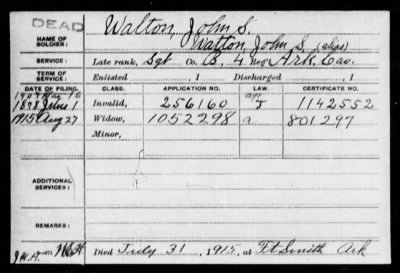 DEAD
NAME OF SOLDIER: Walton, John S.
Watton, John S. (alias)
SERVICE: Late rank, Sgt Co. B, 4 Reg't Ark Cav.
TERM OF SERVICE: Enlisted , 1 Discharged , 1
DATE OF FILING. CLASS. APPLICATION NO. LAW. CERTIFICATE NO.
1878 June 1 Invalid, 256160 1142552
1915 Aug 27 Widow, 1052298 a 801297
Minor,
ADDITIONAL SERVICES:
REMARKS:
Died July 31, 1915, at Ft Smith Ark